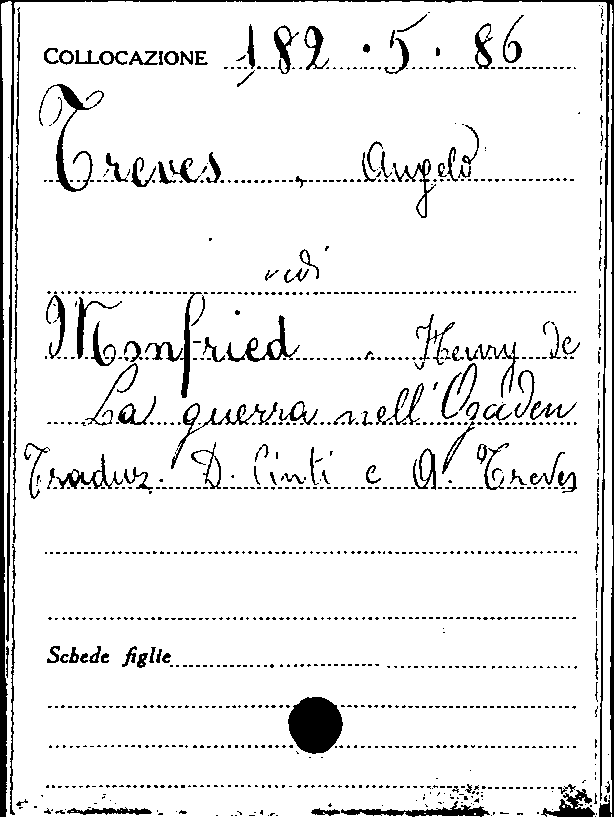 COLLOCAZIONE 182.5.86
Treves, Angelo
vedi
Monfried, Henry de
La guerra nell'Ogaden
Traduz. D. Cinti e A. Treves
Schede figlie